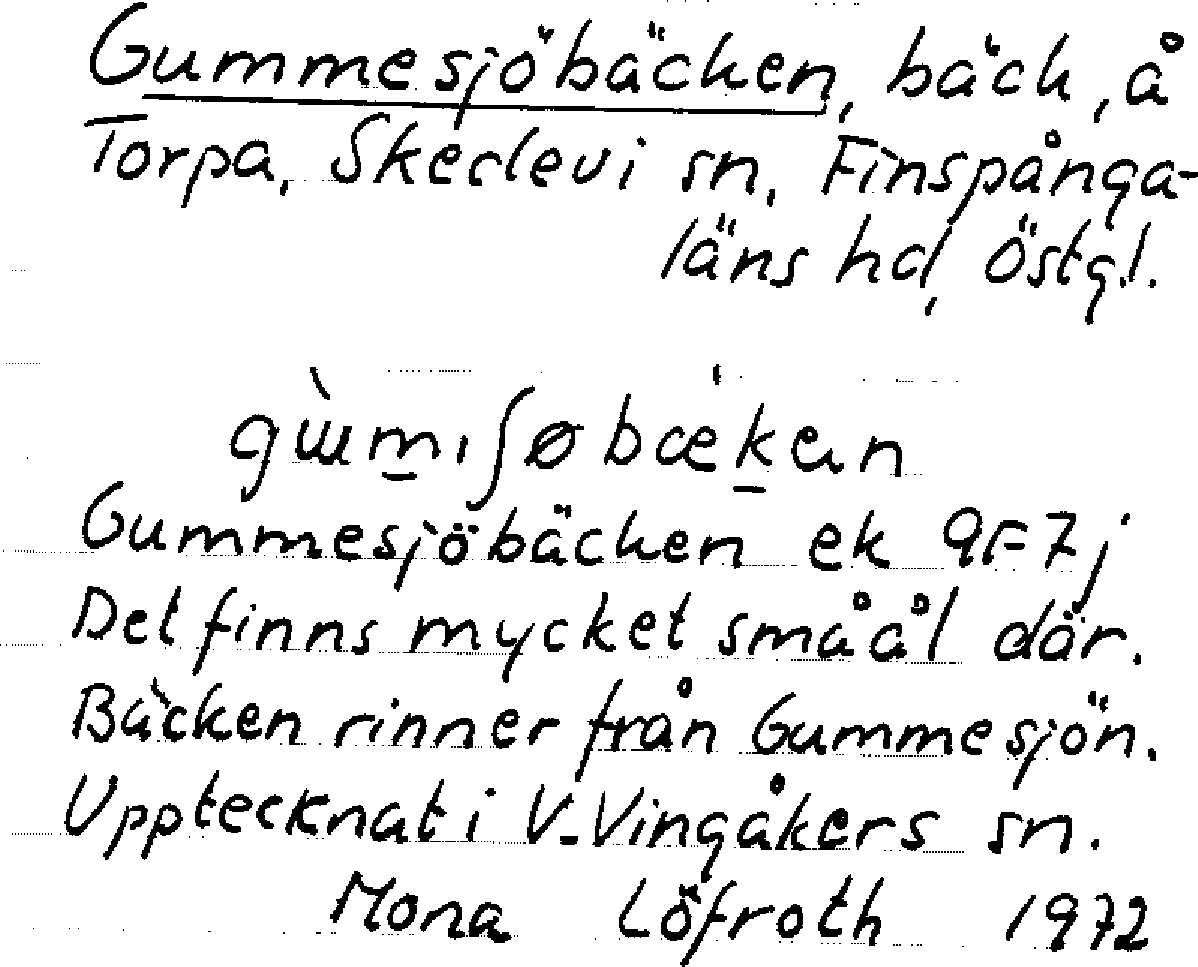 Gummesjöbäcken, bäck, å
Torpa, Skedevi sn, Finspånga-
läns hd, Östgl.
Gummesjöbäcken ek 9F7j
Det finns mycket småål där.
Bäcken rinner från Gummesjön.
Upptecknat i V.Vingåkers sn.
Mona Löfroth 1972